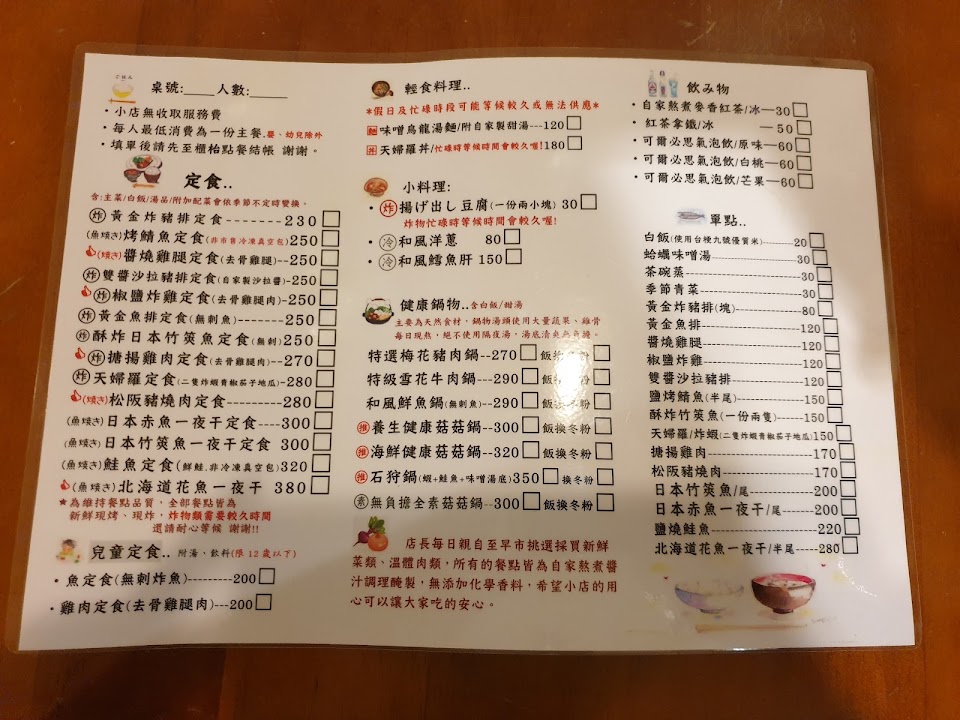 ごはん
桌號:____人數:____
・小店無收取服務費
・每人最低消費為一份主餐.嬰、幼兒除外
・填單後請先至櫃枱點餐結帳 謝謝。
定食..
含:主菜/白飯/湯品/附加配菜會依季節不定時變換、
炸 黃金炸豬排定食-------230
(魚燒き)烤鯖魚定食(非市售冷凍真空包)250
(燒き)醬燒雞腿定食(去骨雞腿)--250
炸 雙醬沙拉豬排定食(自家製沙拉醬)-250
炸 椒鹽炸雞定食(去骨雞腿肉)-250
炸 黃金魚排定食(無刺魚)-----250
炸 酥炸日本竹筴魚定食(無刺)250
炸 搪揚雞肉定食(去骨雞腿肉)--270
炸 天婦羅定食(二隻炸蝦青椒茄子地瓜)-280
(燒き)松阪豬燒肉定食-------280
(魚燒き)日本赤魚一夜干定食----300
(魚燒き)日本竹筴魚一夜干定食 300
(魚燒き)鮭魚定食(鮮鮭.非冷凍真空包)320
(魚燒き)北海道花魚一夜干 380
★為維持餐點品質，全部餐點皆為
新鮮現烤、現炸，炸物類需要較久時間
還請耐心等候 謝謝!!
兒童定食.. 附湯，飲料(限12歲以下)
・魚定食(無刺炸魚)--------200
・雞肉定食(去骨雞腿肉)---200
輕食料理..
*假日及忙碌時段可能等候較久或無法供應*
麵 味噌烏龍湯麵/附自家製甜湯---120
丼 天婦羅丼/忙碌時等候時間會較久喔!180
小料理:
・炸 揚げ出し豆腐(一份兩小塊) 30
炸物忙碌時等候時間會較久喔!
・冷 和風洋蔥 80
・冷 和風鱈魚肝 150
健康鍋物..含白飯/甜湯
主要為天然食材，鍋物湯頭使用大量蔬果、雞骨
每日現熬，絕不使用隔夜湯，湯底清爽無負擔。
特選梅花豬肉鍋--270 飯換冬粉
特級雪花牛肉鍋---290 飯換冬粉
和風鮮魚鍋(無刺魚)--290 飯換冬粉
推 養生健康菇菇鍋---300 飯換冬粉
推 海鮮健康菇菇鍋---320 飯換冬粉
推 石狩鍋(蝦+鮭魚+味噌湯底)350 換冬粉
素 無負擔全素菇菇鍋---300 飯換冬粉
店長每日親自至早市挑選採買新鮮
菜類、溫體肉類，所有的餐點皆為自家熬煮醬
汁調理醃製，無添加化學香料，希望小店的用
心可以讓大家吃的安心。
飲み物
・自家熬煮麥香紅茶/冰—30
・紅茶拿鐵/冰 —50
・可爾必思氣泡飲/原味—60
・可爾必思氣泡飲/白桃—60
・可爾必思氣泡飲/芒果—60
單點..
白飯(使用台稉九號優質米)-------20
蛤蠣味噌湯------------------30
茶碗蒸----------------------30
季節青菜--------------------30
黃金炸豬排(塊)--------------80
黃金魚排--------------------120
醬燒雞腿--------------------120
椒鹽炸雞--------------------120
雙醬沙拉豬排----------------120
鹽烤鯖魚(半尾)--------------150
酥炸竹筴魚(一份兩隻)--------150
天婦羅/炸蝦(二隻炸蝦青椒茄子地瓜)150
搪揚雞肉--------------------170
松阪豬燒肉------------------170
日本竹筴魚/尾---------------200
日本赤魚一夜干/尾-----------200
鹽燒鮭魚--------------------220
北海道花魚一夜干/半尾-----280